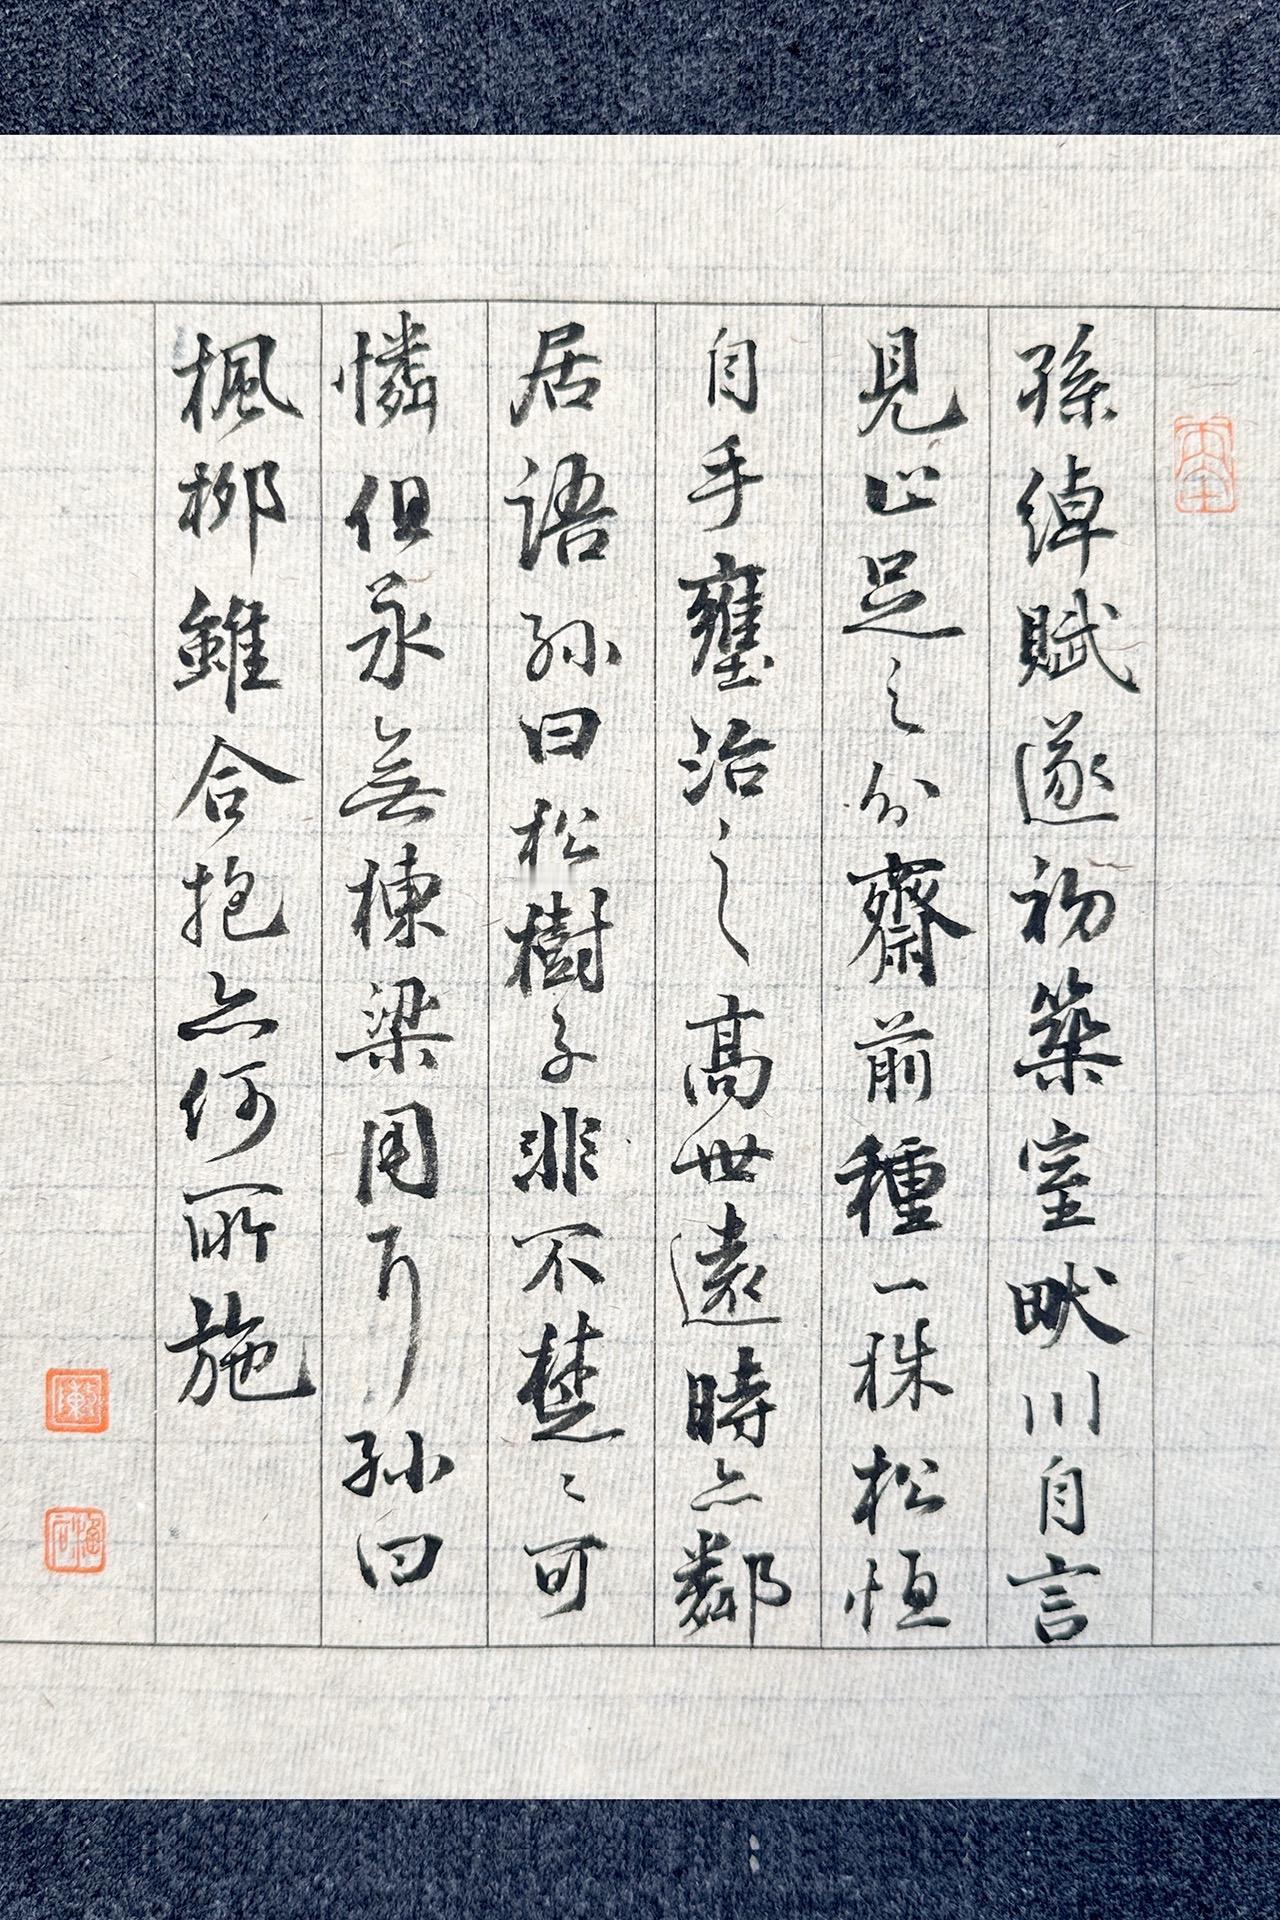 孫綽賦遂初築室畎川自言
見止足之分齋前種一株松恒
自手壅治之高世遠時亦鄰
居語孫曰松樹子非不楚〻可
憐但永無棟梁用耳孫曰
楓柳雖合抱亦何所施